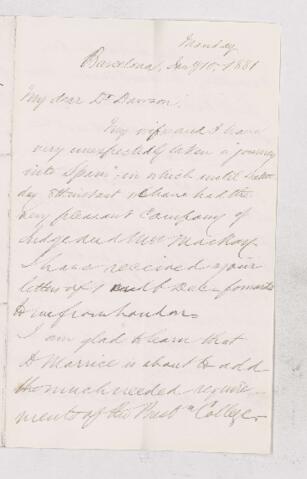 Monday
Barcelona, Jany 10, 1881
My dear Dr Dawson,
My wife and I have
very unexpectedly taken a "journey
into Spain" in which until
day 8th instant we have had the
very pleasant Company of
Judge and Mrs Mackay.
I have received your
letter of 1 and 6 Dec. forwarded
to me from London.
I am glad to learn that
Dr Morrice is about to add
the much needed require-
ments of the Presbn College.